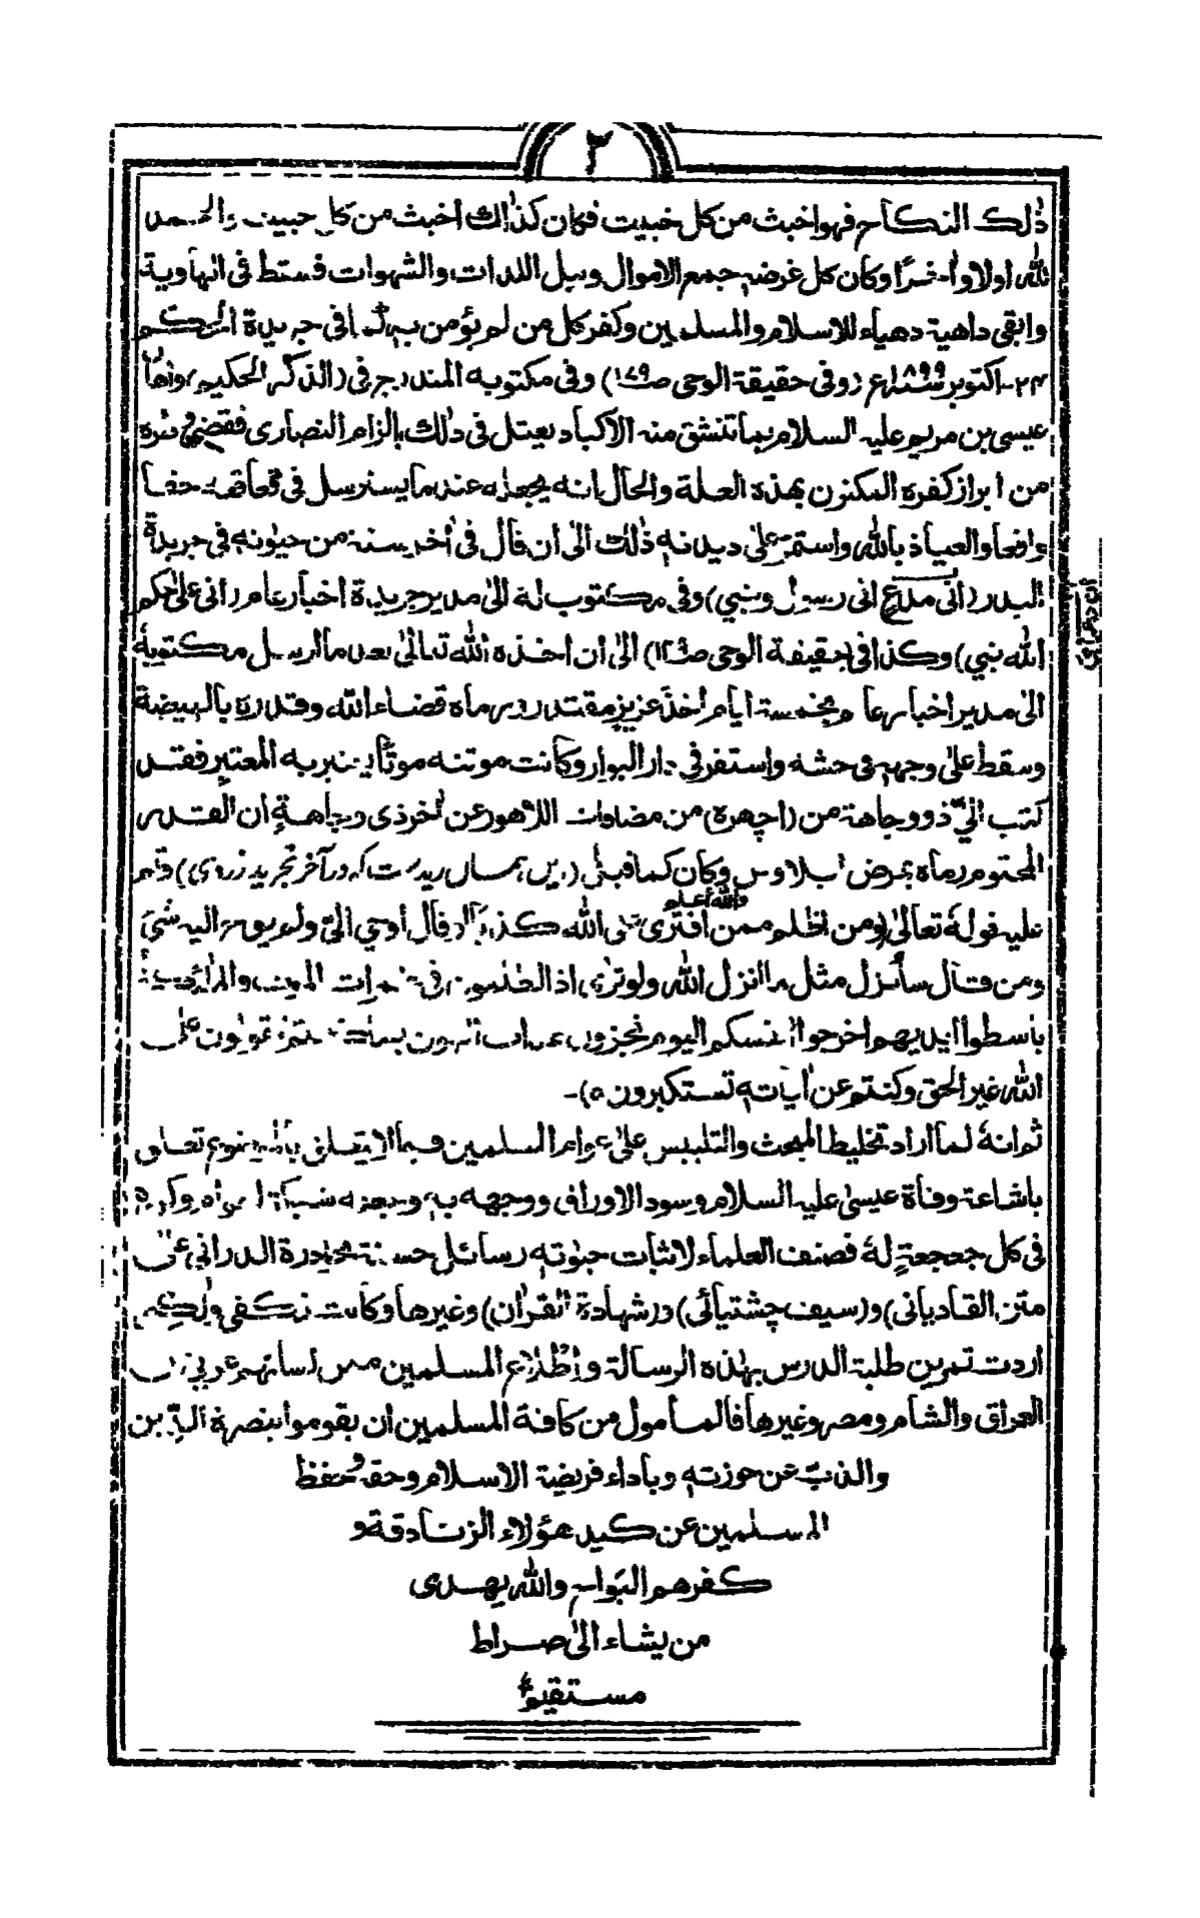 ٣
ذٰلك النكاح فهو اخبث من كل خبيث فكان كذٰلك اخبث من كل خبيث والحمد
لله اولا واٰخرًا وكان كل غرضه جمع الاموال ونيل اللذات والشهوات فسقط فى الهاوية
وابقى داهية دهياء للاسلام والمسلمين وكفر كل من لم يؤمن به كما فى جريدة الحكم
٢٤ - اكتوبر ١٨٩٩ع (وفى حقيقة الوحى) وفى مكتوبه المندرج فى (الذكر الحكيم) واهان
عيسى بن مريم عليه السلام بما تنشق منه الاكباد يعتل فى ذلك بالزام النصارى فقضى وطره
من ابراز كفره المكنون بهذه العلة والحال انه يجعله عند ما يسترسل فى حقا
واقعا والعياذ بالله واستمر على ديدنه ذٰلك الى أن قال فى اٰخر سنة من حيٰوته فى جريدة
البدر (انى مدع انى رسول ونبي) وفى مكتوب له الى مدير جريدة اخبار عام (انى على حكم
الله نبي) وكذا فى (حقيقة الوحى) الى ان اخذه الله تعالىٰ بعد ما ارسل مكتوبهٗ
الى مدير اخبار عام بخمسة ايام اخذ عزيز مقتدر ورماه قضاء الله وقدره بالهيضة
وسقط على وجهه فى حشه واستقر فى دار البوار وكانت موتته موتًا يعتبر به المعتبر فقد
كتب اليّ ذو وجاهة من (اچهره) من مضافات اللاهور عن اٰخر ذى وجاهةٍ أن القدر
المحتوم رماه بمرض ابلاوس وكان كما قيل ( آخر) وتم
عليه قولهٗ تعالىٰ (ومن اظلم ممن افترى على الله كذبًا او قال أوحي اليّ ولم يوح اليه شئ
والله أعلم
ومن قال سأنزل مثل ما انزل الله ولو ترى اذ الظلمون فى غمرات الموت والملٰئكة
باسطوا ايديهم اخرجوا انفسكم اليوم تجزون عذاب الهون بما كنتم تقولون على
الله غير الحق وكنتم عن اٰياته تستكبرون ٥) -
ثم انهٗ لما اراد تخليط المبحث والتلبيس على عوام المسلمين فيما لا يتعلق تعلق
باشاعة وفاة عيسىٰ عليه السلام وسود الاوراق ووجهه به
فى كل جعجعةٍ لهٗ فصنف العلماء لاثبات حيٰوته رسائل حسنة كـ(درة الدرانى على
متن القاديانى) و(سيف چشتيائى) و(شهادة القراٰن) وغيرها وكانت تكفى ولكن
اردت تمرين طلبة الدرس بهٰذه الرسالة واطلاع المسلمين ممن لسانهم عربى من
العراق والشام ومصر وغيرها فالمأمول من كافة المسلمين ان يقوموا بنصرة الدّين
والذبّ عن حوزته وبأداء فريضة الاسلام وحقه وحفظ
المسلمين عن كيد هؤلاء الزنادقة و
كفرهم البواح والله يهدى
من يشاء الىٰ صراط
مستقيم